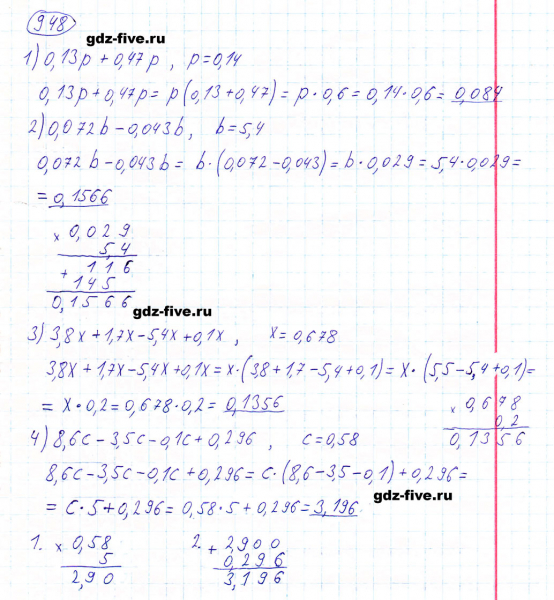 948
gdz-five.ru
1) 0,13p + 0,47p , p=0,14
0,13p + 0,47p = p(0,13+0,47) = p·0,6 = 0,14·0,6 = 0,084
2) 0,072b - 0,043b , b=5,4
0,072b - 0,043b = b·(0,072-0,043) = b·0,029 = 5,4·0,029 =
= 0,1566
x 0,029
5,4
+ 116
145
0,1566
gdz-five.ru
3) 3,8x + 1,7x - 5,4x + 0,1x , x=0,678
3,8x + 1,7x - 5,4x + 0,1x = x·(3,8+1,7-5,4+0,1) = x·(5,5-5,4+0,1) =
= x·0,2 = 0,678·0,2 = 0,1356
x 0,678
0,2
0,1356
4) 8,6c - 3,5c - 0,1c + 0,296 , c=0,58
8,6c - 3,5c - 0,1c + 0,296 = c·(8,6-3,5-0,1) + 0,296 =
gdz-five.ru
= c·5 + 0,296 = 0,58·5 + 0,296 = 3,196
1. x 0,58
5
2,90
2. + 2,900
0,296
3,196